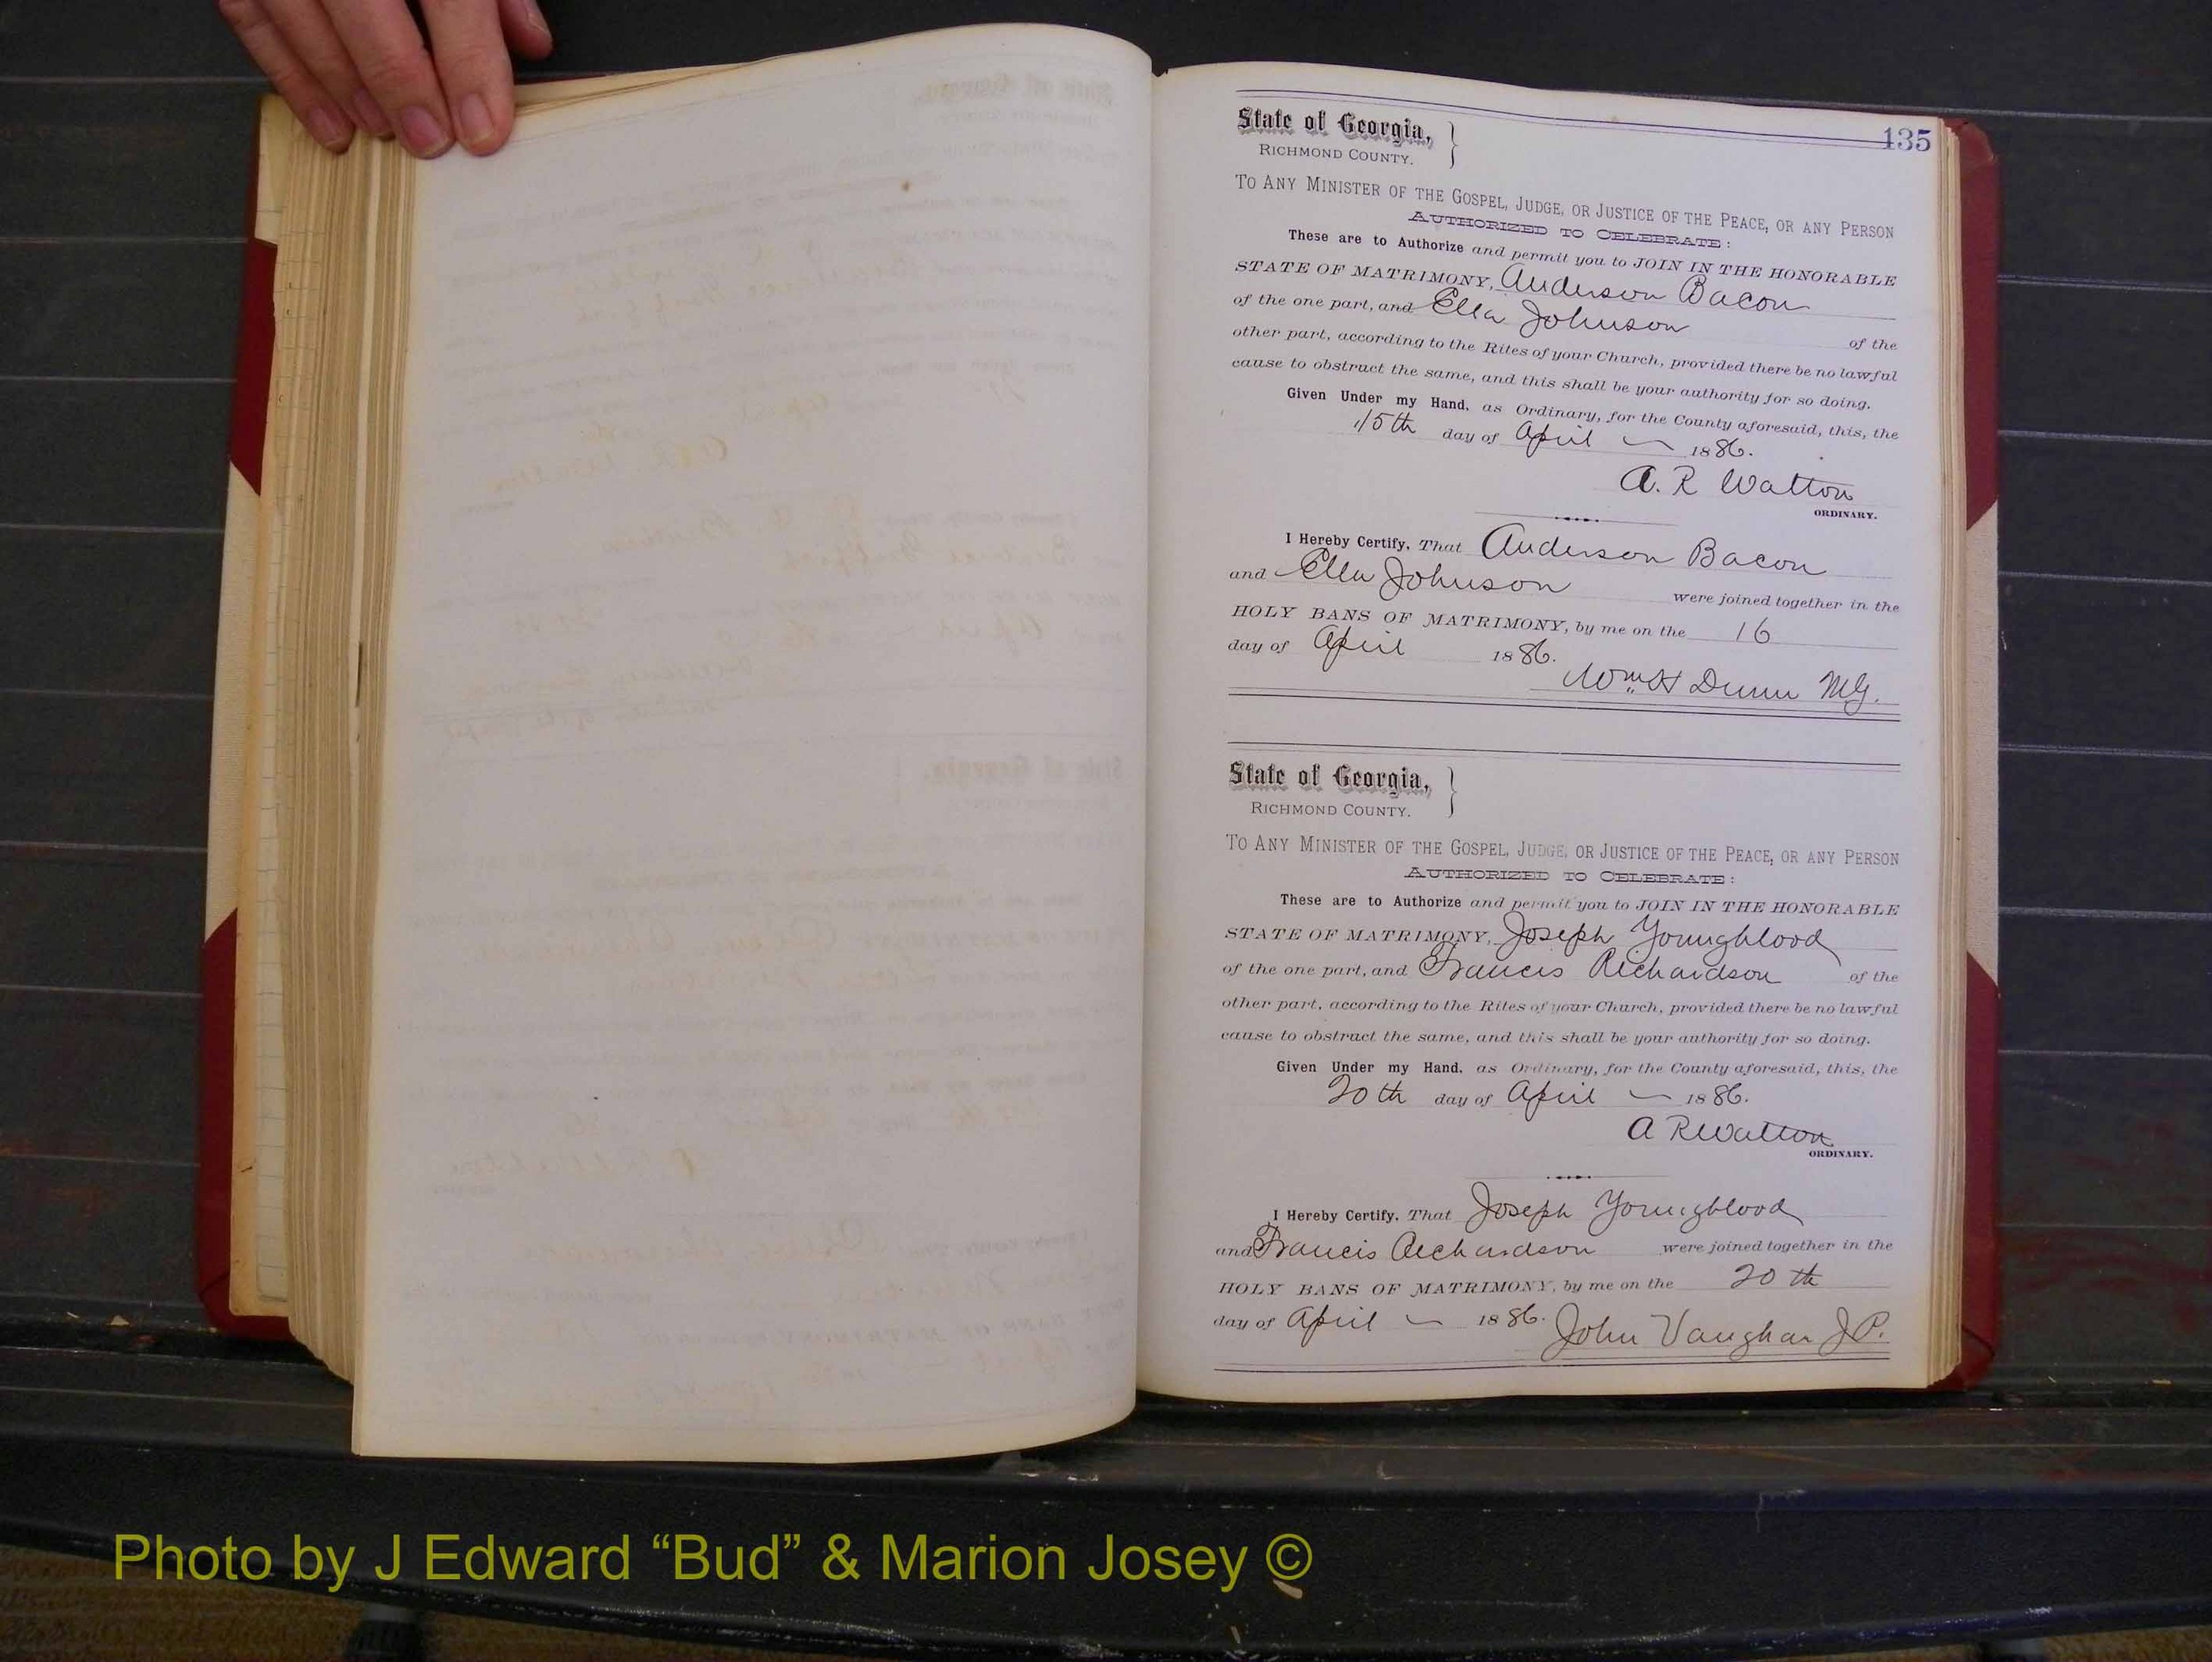 135
State of Georgia, }
RICHMOND COUNTY.
TO ANY MINISTER OF THE GOSPEL, JUDGE, OR JUSTICE OF THE PEACE, OR ANY PERSON
AUTHORIZED TO CELEBRATE:
These are to Authorize and permit you to JOIN IN THE HONORABLE
STATE OF MATRIMONY, Anderson Bacon
of the one part, and Ella Johnson of the
other part, according to the Rites of your Church, provided there be no lawful
cause to obstruct the same, and this shall be your authority for so doing.
Given Under my Hand, as Ordinary, for the County aforesaid, this, the
15th day of April 1886.
A. R Walton
ORDINARY.
I Hereby Certify, That Anderson Bacon
and Ella Johnson were joined together in the
HOLY BANS OF MATRIMONY, by me on the 16
day of April 1886.
Wm H Dunn M.G.
State of Georgia, }
RICHMOND COUNTY.
TO ANY MINISTER OF THE GOSPEL, JUDGE, OR JUSTICE OF THE PEACE, OR ANY PERSON
AUTHORIZED TO CELEBRATE:
These are to Authorize and permit you to JOIN IN THE HONORABLE
STATE OF MATRIMONY, Joseph Youngblood
of the one part, and Francis Richardson of the
other part, according to the Rites of your Church, provided there be no lawful
cause to obstruct the same, and this shall be your authority for so doing.
Given Under my Hand, as Ordinary, for the County aforesaid, this, the
20th day of April 1886.
A R Walton
ORDINARY.
I Hereby Certify, That Joseph Youngblood
and Francis Richardson were joined together in the
HOLY BANS OF MATRIMONY, by me on the 20th
day of April 1886. John Vaughan J.P.
Photo by J Edward “Bud” & Marion Josey ©